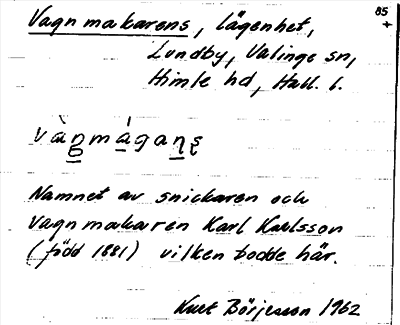 85
+
Vagnmakarens, lägenhet,
Lundby, Valinge sn,
Himle hd, Hall. l.
vàŋmágaṉs
Namnet av snickaren och
vagnmakaren Karl Karlsson
(född 1881) vilken bodde här.
Kurt Börjesson 1962